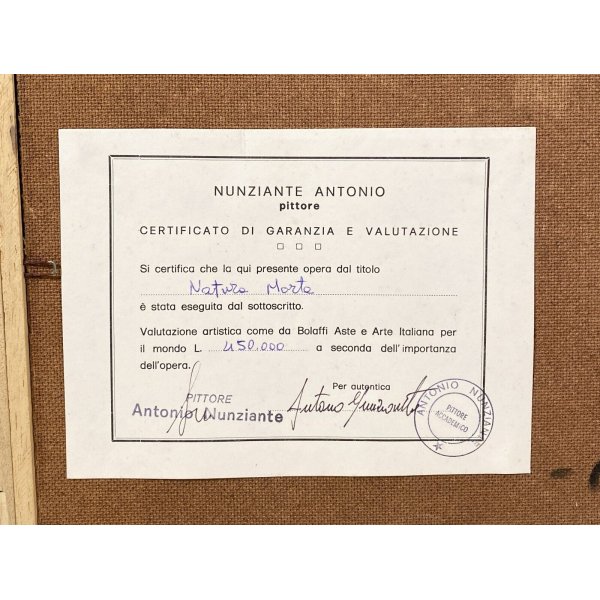 NUNZIANTE ANTONIO
pittore
CERTIFICATO DI GARANZIA E VALUTAZIONE
Si certifica che la qui presente opera dal titolo
Natura Morta
è stata eseguita dal sottoscritto.
Valutazione artistica come da Bolaffi Aste e Arte Italiana per
il mondo L. 450.000 a seconda dell'importanza
dell'opera.
Per autentica
PITTORE
Antonio Nunziante
Antonio Nunziante
ANTONIO NUNZIANTE
PITTORE
ACCADEMICO